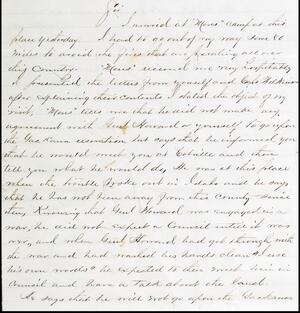 Sir:
I arrived at "Moses" Camp at this
place yesterday. I had to go out of my way some 80
miles to avoid the fires that are burning all over
this Country. "Moses" received me very hospitably
I presented the letters from yourself and Capt.
after explaining their contents I stated the object of my
visit. "Moses" tells me that he did not make any
agreement with Genl Howard or yourself to go upon
the Yackama reservation but says that he informed you
that he would meet you at Colville and then
tell you what he would do. He was at this place
when the trouble broke out in Idaho and he says
that he has not been away from this country since
then, Knowing that Genl Howard was engaged in a
war, he did not expect a Council until it was
over, and when Genl Howard had got through with
the war and had washed his hands clean "I use
his own words" he expected to then meet him in
Council and have a talk about the land.
He says that he will not go upon the Yackamas